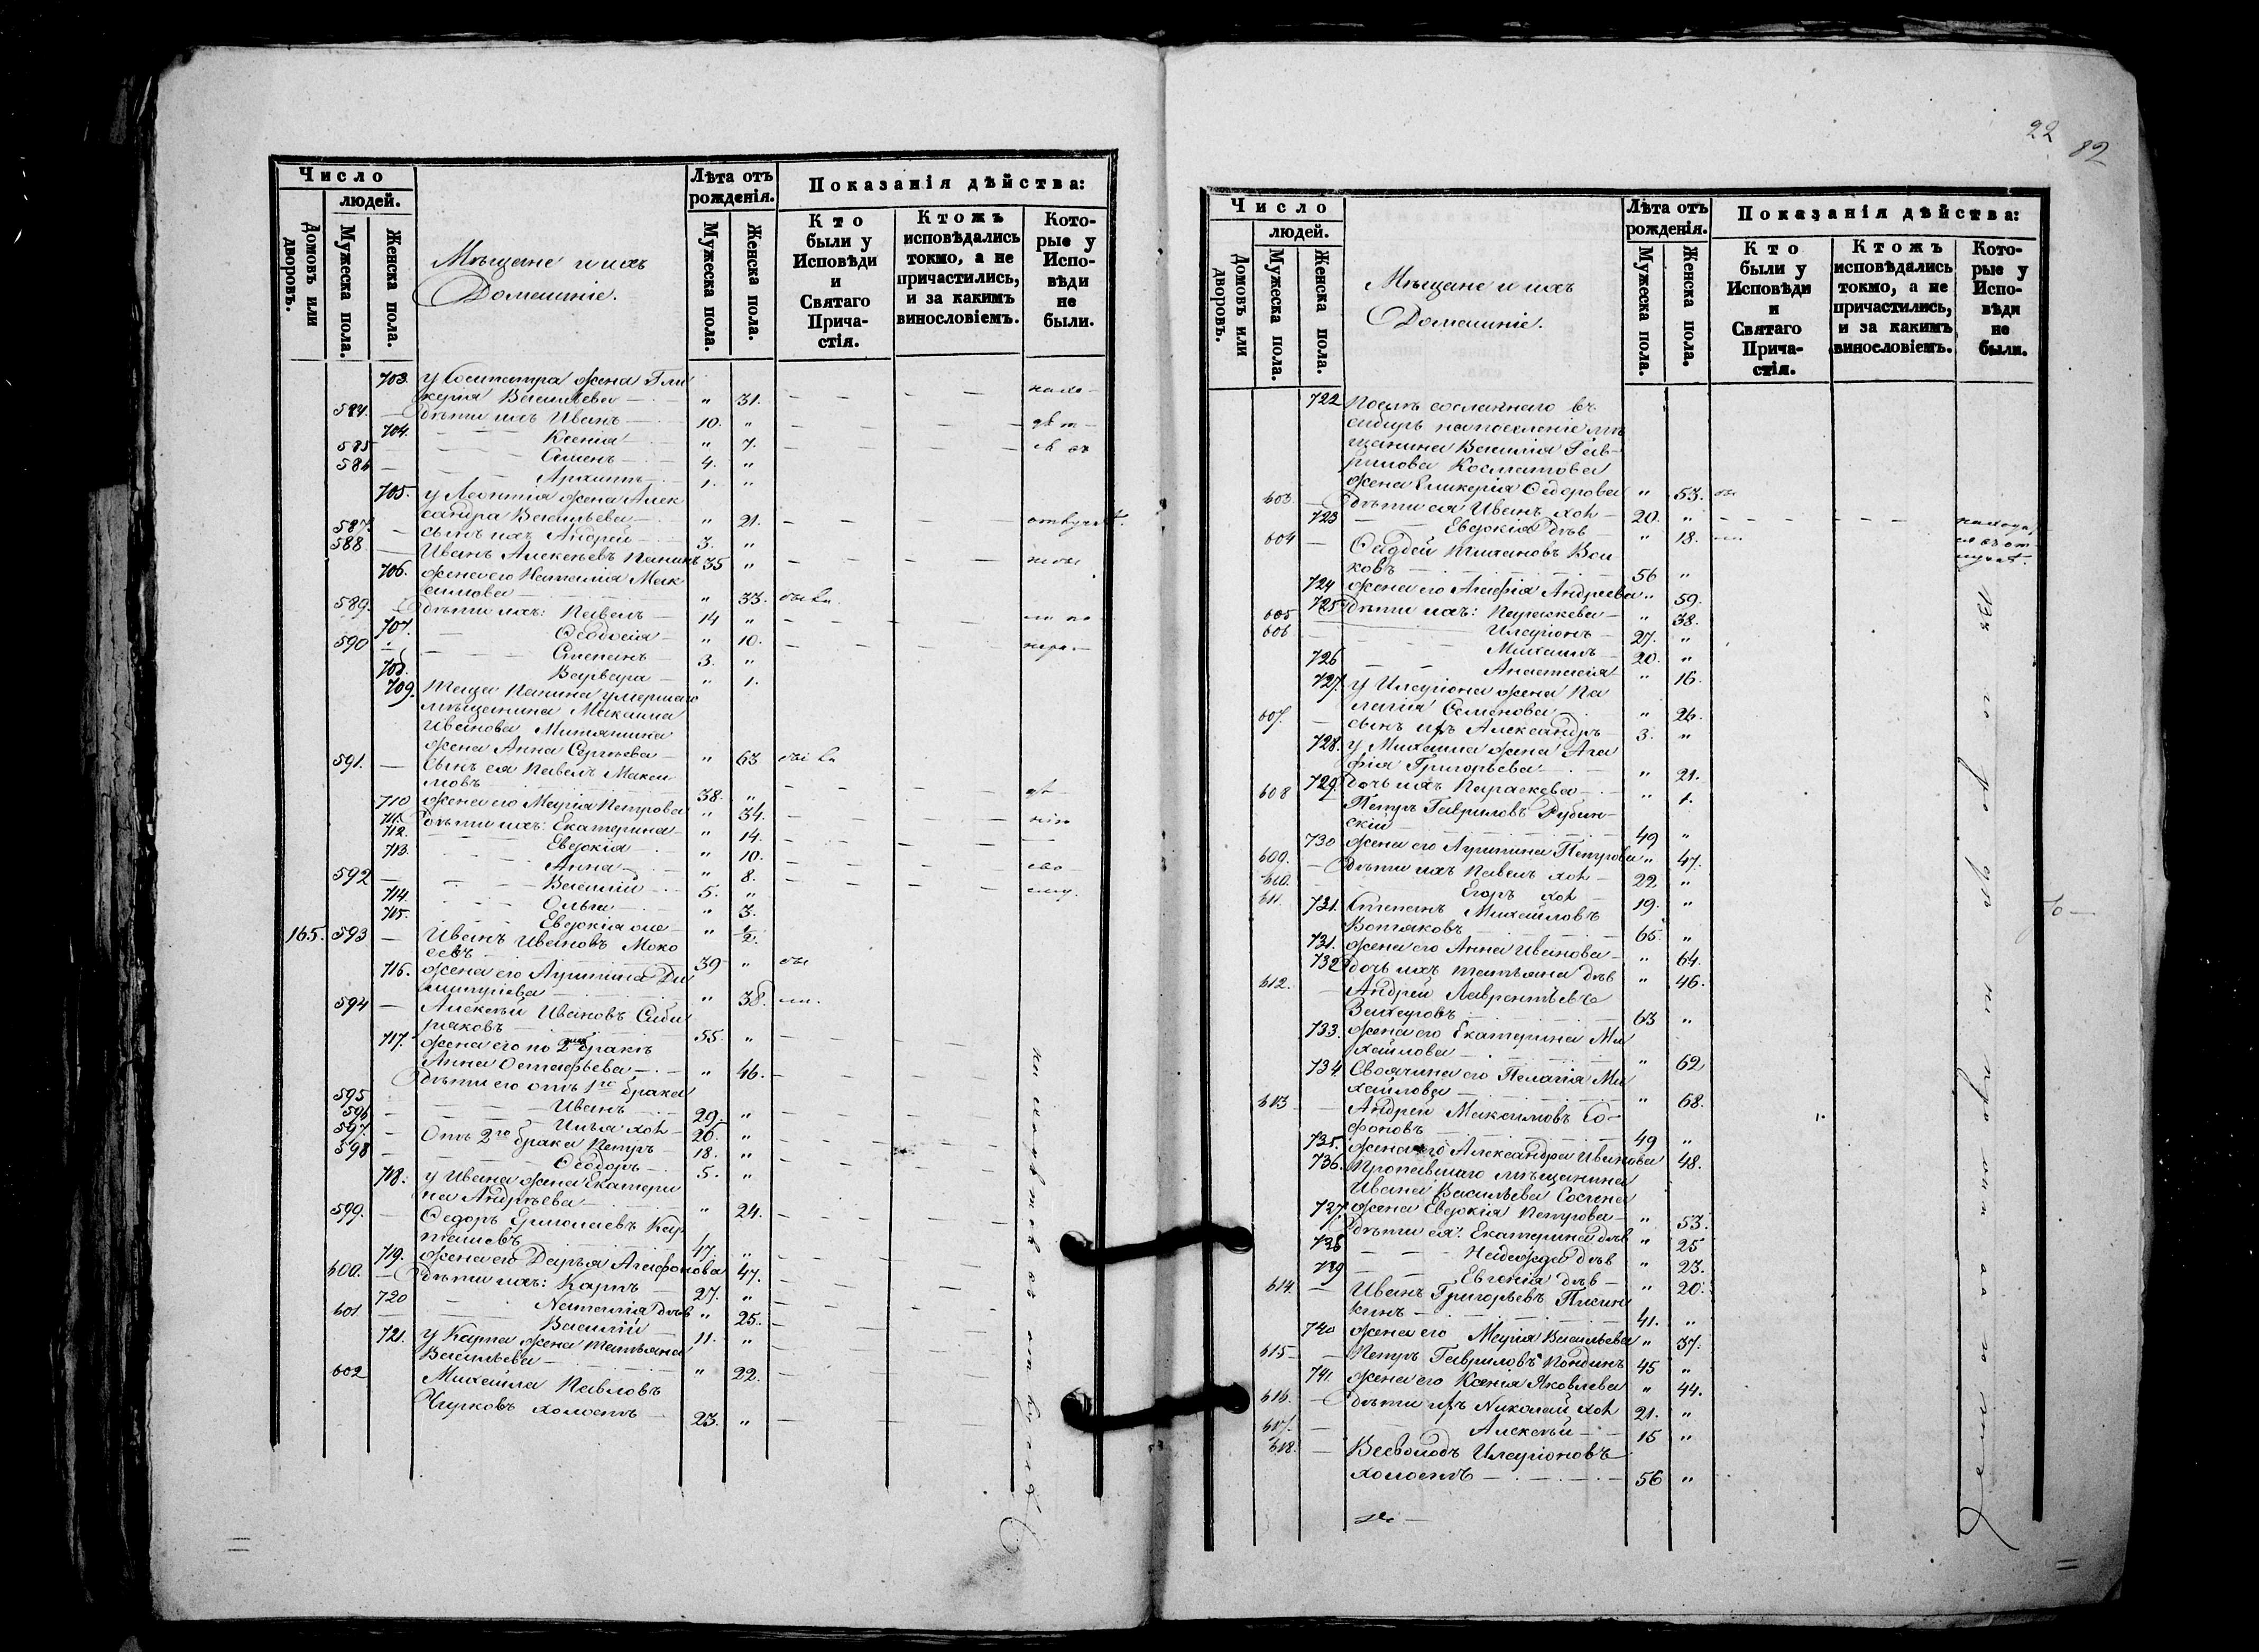 Число
людей.
Домовъ или дворовъ.
Мужеска пола.
Женска пола.
Мѣщане и ихъ
Домашніе.
Лѣта отъ рожденія.
Мужеска пола.
Женска пола.
Показанія дѣйства:
Кто были у Исповѣди и Святаго Прича-стія.
Ктожъ исповѣдались токмо, а не причастились, и за какимъ винословіемъ.
Кото-рые у Испо-вѣди не были.
703. у Сосипатра жена Гли
керія Васильева — " 31.
584. — Дѣти ихъ Иванъ — 10. "
704. Ксенія — " 7.
585 Семенъ — 4. "
586 — Архипъ — 1. "
705. у Леонтія жена Алек
сандра Васильева — " 21.
587. — сынъ ихъ Андрей — 3. "
588 — Иванъ Алексѣевъ Панинъ 35 "
706. жена его Наталія Мак
симова — " 33. были
589. Дѣти ихъ: Павелъ — 14 "
707. — Ѳеодосія — " 10.
590 — Степанъ — 3. "
708. Варвара — " 1.
709. Теща Панина умершаго
мѣщанина Максима
Иванова Митянина
жена Анна Сергѣева — " 63 были
591. — Сынъ ея Павелъ Макси
мовъ — 38. "
710 жена его Марія Петрова " 34.
711. Дѣти ихъ: Екатерина — " 14.
712. Евдокія — " 10.
713. Анна — " 8.
592 — Василій — 5. "
714. Ольга — " 3.
715. Евдокія — " 1/2.
165. 593 — Иванъ Ивановъ Моко
еевъ — 39 " бы
716. жена его Агрипина Ди
митріева — " 38. ли.
594 — Алексѣй Ивановъ Сиби
ряковъ — 55. "
717. жена его по 2му бракѣ
Анна Остафьева — " 46.
Дѣти его отъ 1го брака
595 Иванъ — 29. "
596 — Илья хол — 26. "
597. — Отъ 2го брака Петръ — 18. "
598 — Ѳеодоръ — 5. "
718. у Ивана жена Екатери
на Андрѣева — " 24.
599. — Ѳедоръ Ермолаевъ Кар
ташевъ — 47. "
719. жена его Дарья Агафонова 47.
600. — Дѣти ихъ: Карпъ — 27. "
720 Наталія дѣв " 25.
601 Василій — 11. "
721. у Карпа жена Татьяна
Васильева — " 22.
602 Михайла Павловъ
Чирковъ холостъ — 23. "
22
82
Число
людей.
Домовъ или дворовъ.
Мужеска пола.
Женска пола.
Мѣщане и ихъ
Домашніе.
Лѣта отъ рожденія.
Мужеска пола.
Женска пола.
Показанія дѣйства:
Кто были у Исповѣди и Святаго Прича-стія.
Ктожъ исповѣдались токмо, а не причастились, и за какимъ винословіемъ.
Кото-рые у Испо-вѣди не были.
722 Послѣ сосланнаго въ
сибирь на поселеніе мѣ
щанина Василія Гав-
рилова Косматова
жена Гликерія Ѳедорова " 53. бы
603 — Дѣти ея Иванъ хол — 20. "
723 — Евдокія дѣв — " 18. ли
604 — Ѳаддей Тихановъ Вол
ковъ — 56 "
724 жена его Агафія Андреева " 59.
725 Дѣти ихъ: Параскева — " 38.
605 Иларіонъ — 27. "
606 Михаилъ — 20. "
726 Анастасія " 16.
727. у Иларіона жена Пе
лагія Семенова " 26.
607. — сынъ ихъ Александръ — 3. "
728. у Михаила жена Ага
фія Григорьева — " 21.
729. Дочь ихъ Параскева — " 1.
608 — Петръ Гавриловъ Рубин-
скій — 49 "
730 жена его Агрипина Петрова " 47.
609. — Дѣти ихъ Павелъ хол — 22 "
610. Егоръ хол — 19. "
611. 731. Степанъ Михайловъ
Вотяковъ — 65. "
731. жена его Анна Иванова — " 64.
732 Дочь ихъ Татьяна дѣв " 46.
612. — Андрей Лаврентьевъ
Захаровъ — 63 "
733. жена его Екатерина Ми
хайлова — " 62
734 Своячина его Пелагія Ми
хайлова — " 68.
613 — Андрей Максимовъ Со-
фоновъ — 49 "
735. жена его Александра Иванова 48.
736. Пропавшаго мѣщанина
Ивана Васильева
жена Евдокія Петрова — " 53.
737. Дѣти ея: Екатерина дѣв " 25
738 Надежда дѣв " 23.
739 Евгенія дѣв — " 20.
614. — Иванъ Григорьевъ
кинъ — 41. "
740 жена его Марія Васильева " 37.
615 — Петръ Гавриловъ Пондинъ 45 "
741 жена его Ксенія Яковлева " 44.
616. — Дѣти ихъ Николай хол 21. "
617. — Алексѣй — 15 "
618. — Всеволодъ Иларіоновъ
холостъ — 56 "